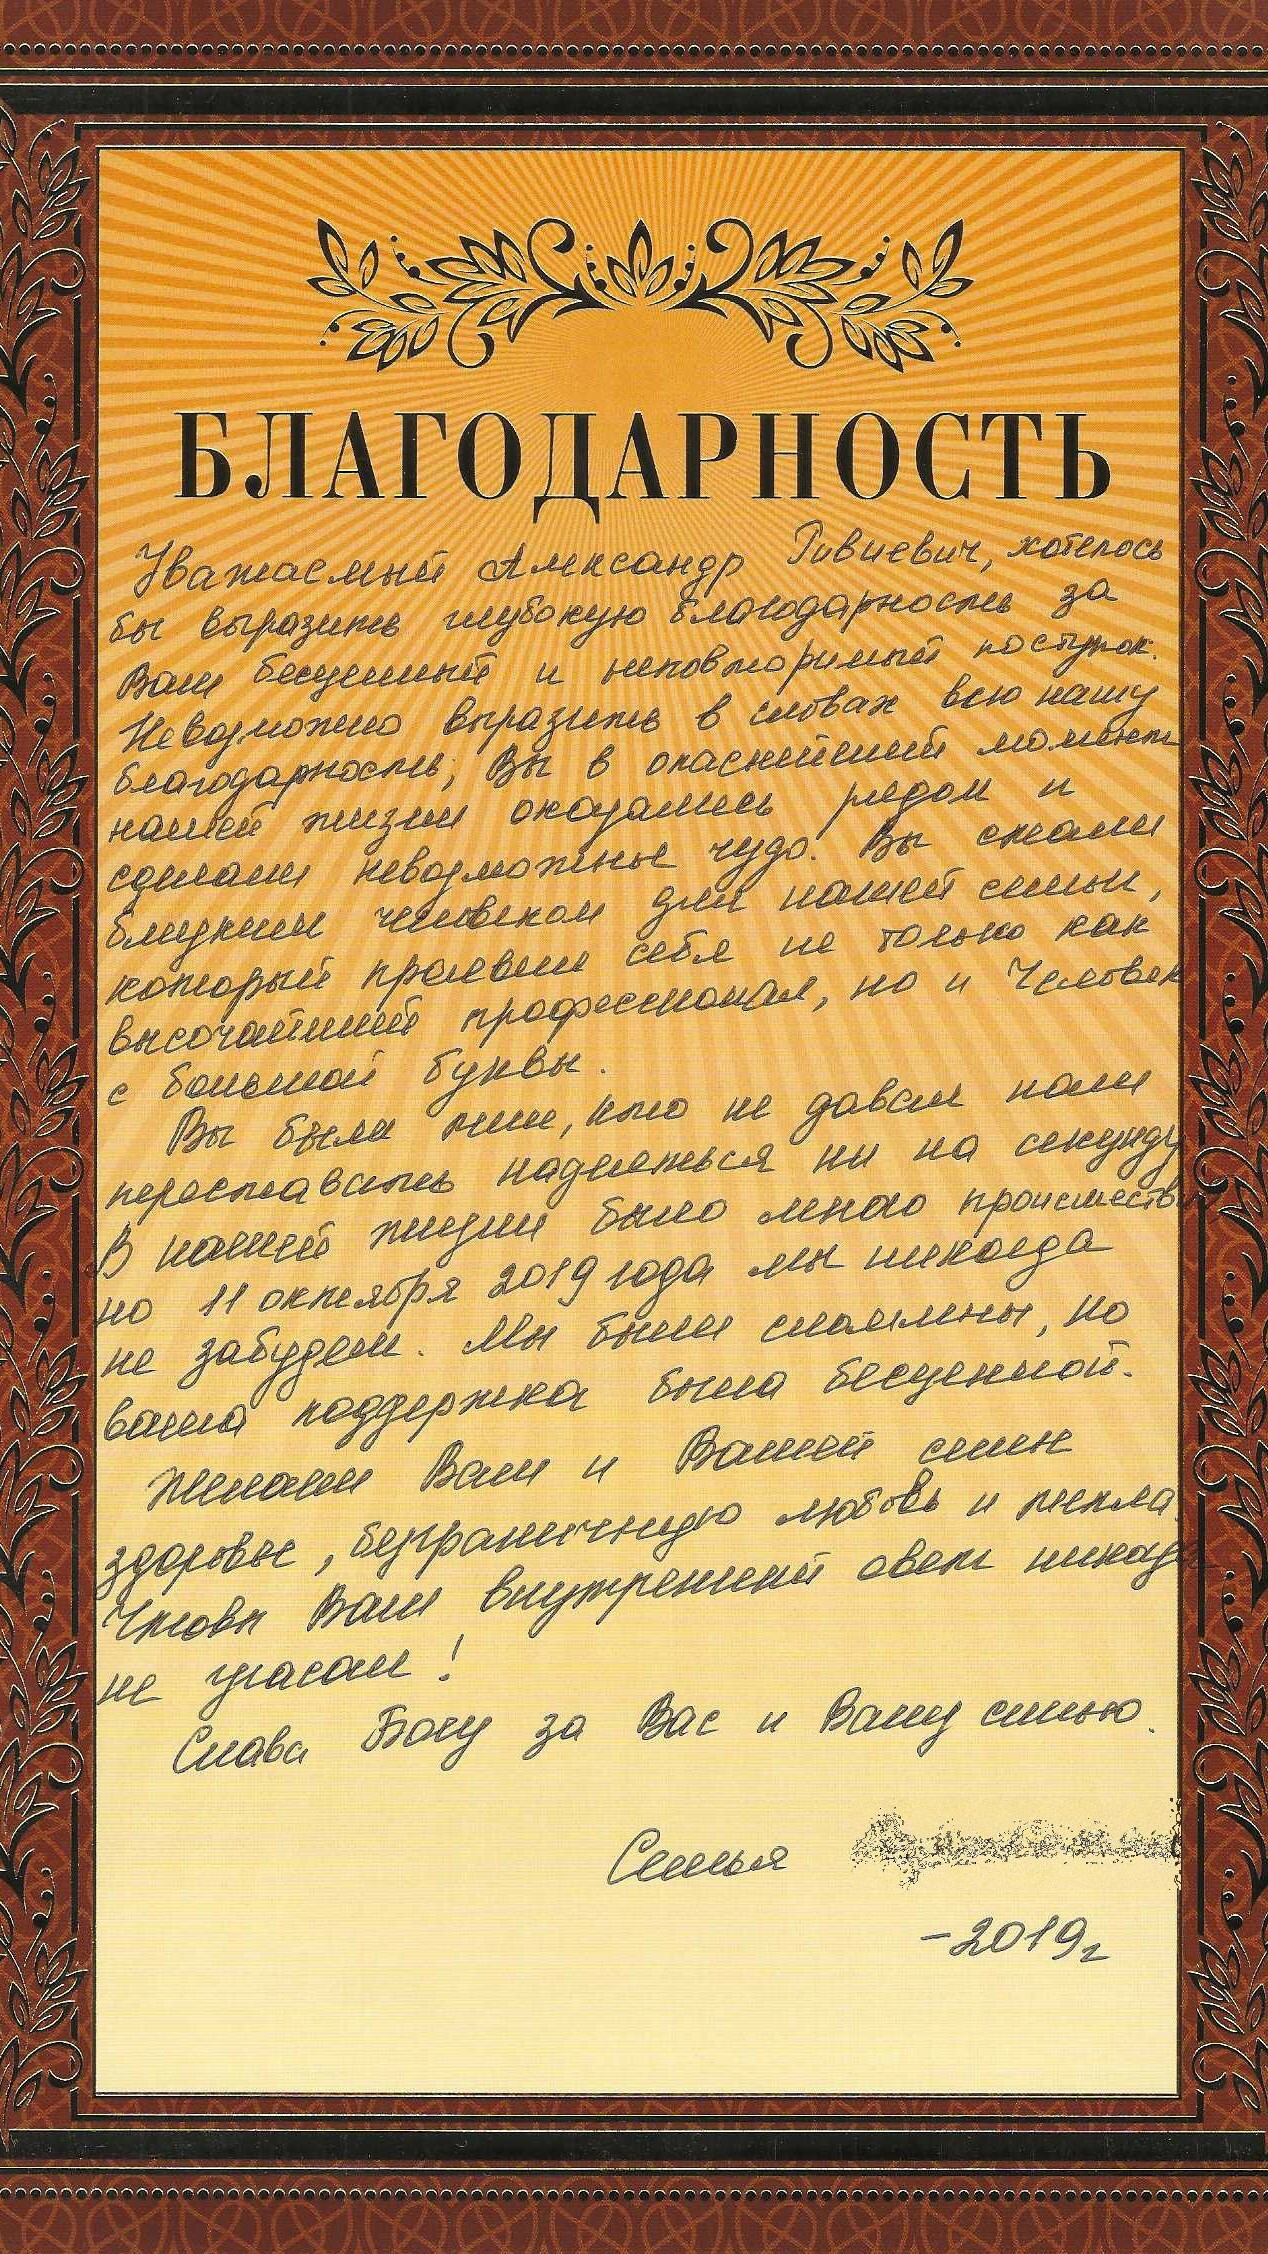 БЛАГОДАРНОСТЬ
Уважаемый Александр хотелось
бы выразить глубокую благодарность за
Ваш бесценный и неповторимый поступок.
Невозможно выразить в словах всю нашу
благодарность, Вы в опаснейший момент
нашей жизни оказались рядом и
сделали невозможные чудо. Вы стали
близким человеком для нашей семьи,
который проявили себя не только как
высочайший профессионал, но и Человек
с большой буквы.
Вы были тем, кто не давал нам
переставать надеяться ни на секунду
В нашей жизни было много происшеств
но 11 октября 2019 года мы никогда
не забудем. Мы были сломлены, но
ваша поддержка была бесценной.
Желаем Вам и Вашей семье
здоровье, безграничную любовь и тепла.
Чтобы Ваш внутренний свет никогда
не угасал!
Слава Богу за Вас и Вашу семью.
Семья
-2019г